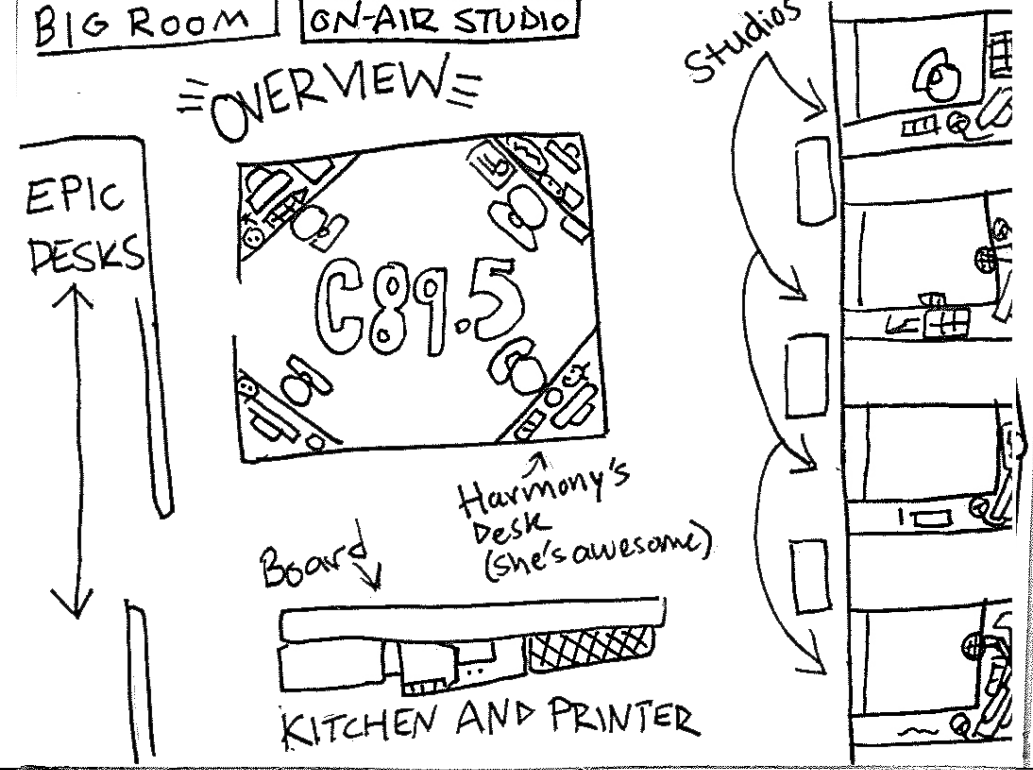 BIG ROOM
ON-AIR STUDIO
Studios
OVERVIEW
EPIC
DESKS
C89.5
Harmony's
Desk
(she's awesome)
Board
KITCHEN AND PRINTER